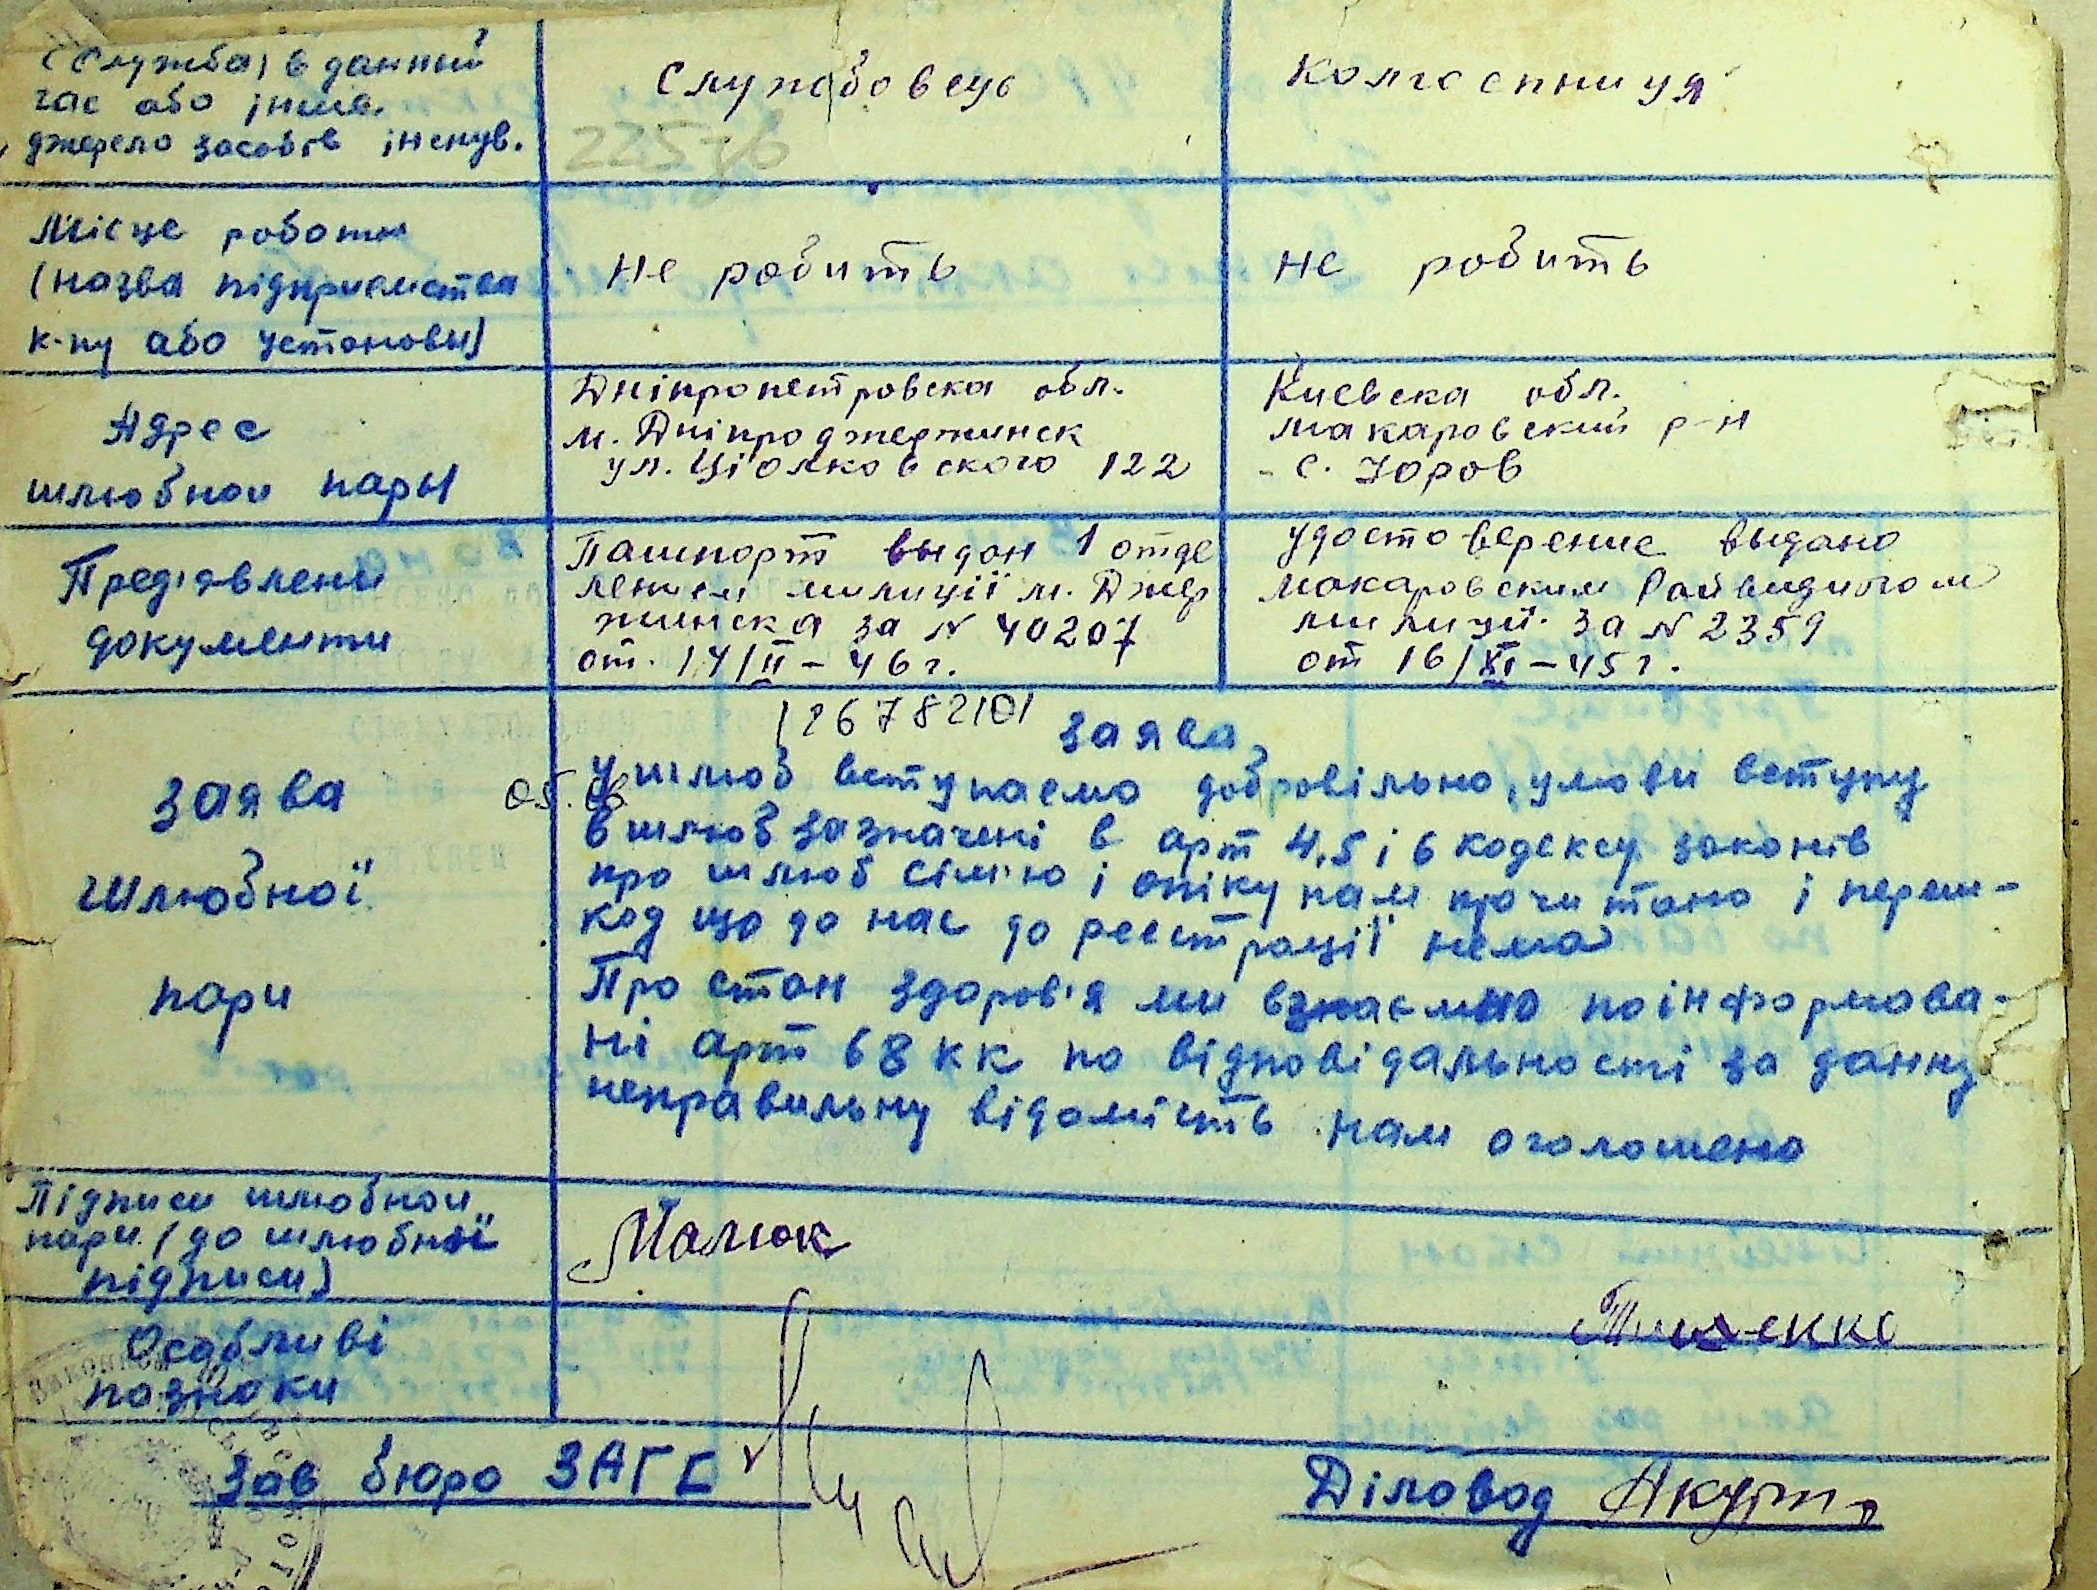 (Служба) в данный
час або інше.
джерело засобів існув.
Службовець
Колгоспниця
225
Місце роботи
(назва підприємства
к-ну або установы)
Не робить
не робить
Адрес
шлюбнои пары
Дніпропетровска обл.
м. Дніпроджержинск
ул. Ціолковского 122
Киевска обл.
Макаровский р-н
с.
Пред'явлени
документи
Пашпорт выдан 1 отде
лением милиції м. Джер
жинска за N 40207
от. 14/II - 46 г.
Удостоверение выдано
Макаровским
милиции за N 2359
от 16/XI - 45 г.
126782101
Заява
05.
Заява
шлюбної
пари
У шлюб вступаємо добровільно, умови вступу
в шлюб зазначені в арт 4,5 і 6 кодексу законів
про шлюб сім'ю і опіку нам прочитано і переш-
код що до нас до реєстрації нема
Про стан здоров'я ми взнаємно поінформова-
ні арт 68 КК по відповідальності за данну
неправильну відомість нам оголошено
Підписи шлюбнои
пари (до шлюбної
підписи)
Малюк
Тищенко
Особливі
познаки
Зав бюро ЗАГС
Діловод